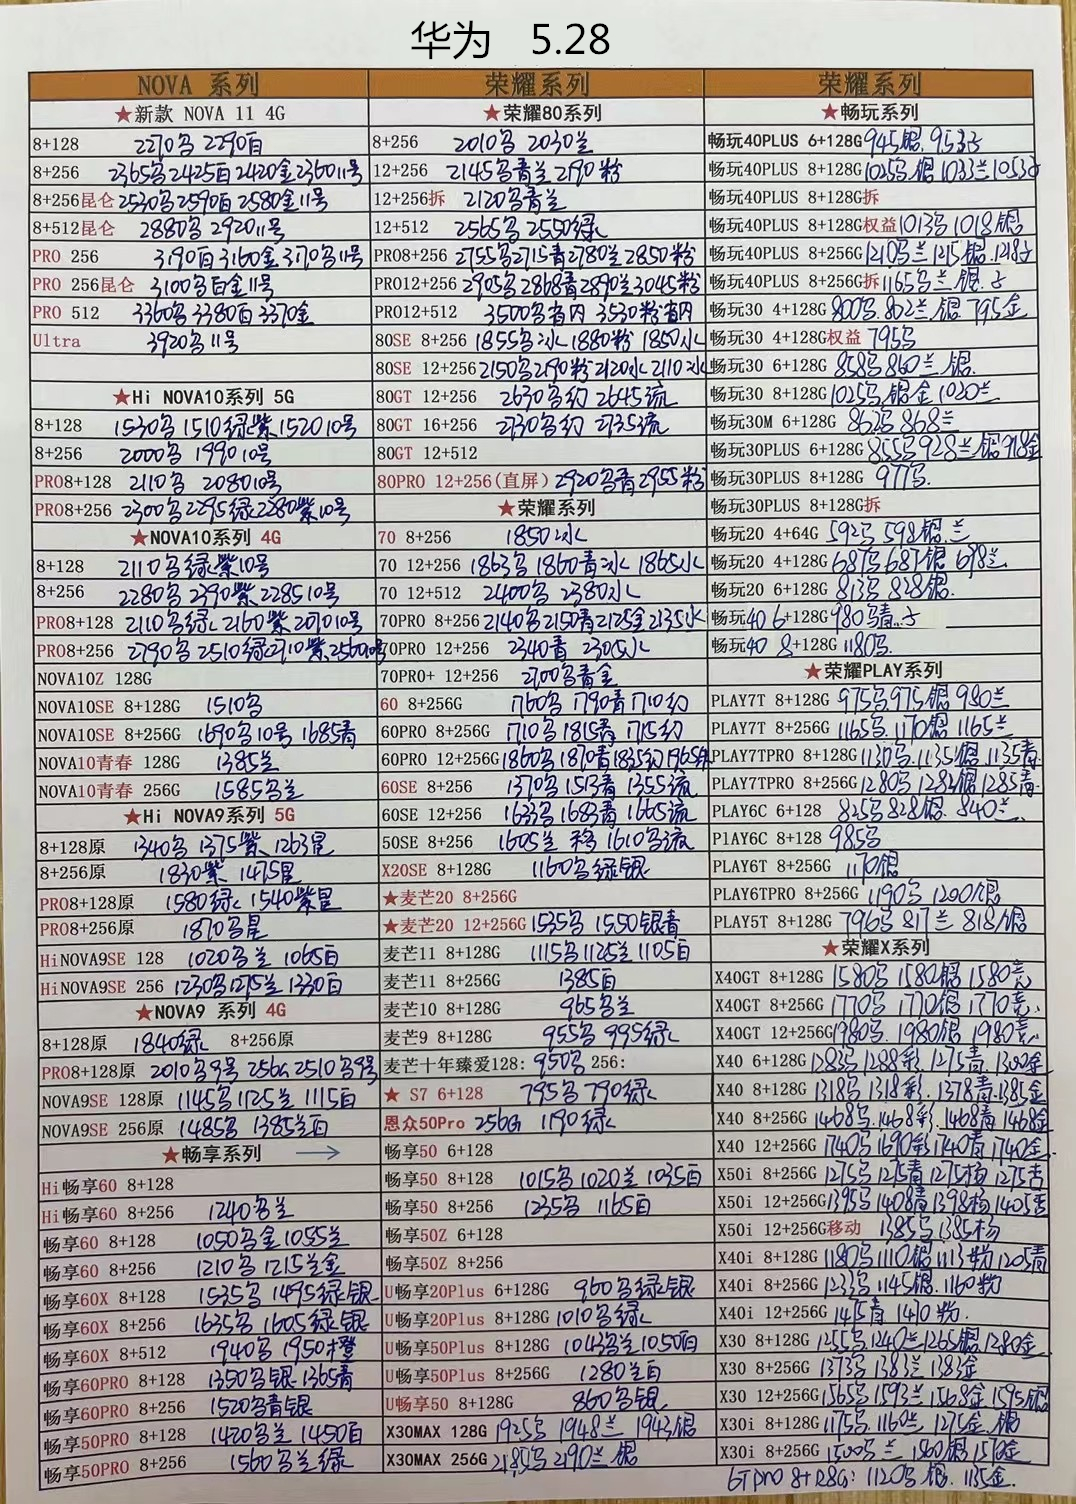 华为 5.28
NOVA 系列
★新款 NOVA 11 4G
8+128 2270乌 2290白
8+256 2365乌 2425白 2420金 2360 11号
8+256昆仑 2530乌 2590白 2580金 11号
8+512昆仑 2880乌 2920 11号
PRO 256 3190白 3160金 3170乌 11号
PRO 256昆仑 3100乌白金 11号
PRO 512 3360乌 3380白 3370金
Ultra 3920乌 11号
★Hi NOVA10系列 5G
8+128 1530乌 1510绿紫 1520 10号
8+256 2000乌 1990 10号
PRO8+128 2110乌 2080 10号
PRO8+256 2300乌 2295绿 2280紫 10号
★NOVA10系列 4G
8+128 2110乌绿紫 10号
8+256 2280乌 2290紫 2285 10号
PRO8+128 2110乌绿 2160紫 2070 10号
PRO8+256 2790乌 2510绿 2710紫 2560 10号
NOVA10Z 128G
NOVA10SE 8+128G 1510乌
NOVA10SE 8+256G 1690乌 10号 1685青
NOVA10青春 128G 1385兰
NOVA10青春 256G 1585乌兰
★Hi NOVA9系列 5G
8+128原 1340乌 1375紫 1263星
8+256原 1830紫 1475星
PRO8+128原 1580绿 1540紫星
PRO8+256原 1870乌星
HiNOVA9SE 128 1020乌兰 1065白
HiNOVA9SE 256 1230乌 1275兰 1330白
★NOVA9 系列 4G
8+128原 1840绿 8+256原
PRO8+128原 2010乌9号 256G 2510乌9号
NOVA9SE 128原 1145乌 1125兰 1115白
NOVA9SE 256原 1485乌 1385兰白
★畅享系列 →
Hi畅享60 8+128
Hi畅享60 8+256 1240乌兰
畅享60 8+128 1050乌金 1055兰
畅享60 8+256 1210乌 1215兰金
畅享60X 8+128 1535乌 1495绿银
畅享60X 8+256 1635乌 1605绿银
畅享60X 8+512 1940乌 1950橙
畅享60PRO 8+128 1350乌银 1365青
畅享60PRO 8+256 1520乌青银
畅享50PRO 8+128 1420乌兰 1450白
畅享50PRO 8+256 1560乌兰绿
荣耀系列
★荣耀80系列
8+256 2010乌 2030兰
12+256 2145乌青兰 2190粉
12+256拆 2120乌青兰
12+512 2565乌 2550绿
PRO8+256 2755乌 2715青 2780兰 2850粉
PRO12+256 2905乌 2868青 2890兰 3045粉
PRO12+512 3500乌有内 3530粉有内
80SE 8+256 1855乌冰 1880粉 1850冰
80SE 12+256 2150乌 2190粉 2120冰 2110冰
80GT 12+256 2630乌幻 2645流
80GT 16+256 2730乌幻 2735流
80GT 12+512
80PRO 12+256(直屏) 2920乌青 2955粉
★荣耀系列
70 8+256 1850冰
70 12+256 1863乌 1860青冰 1865冰
70 12+512 2400乌 2380冰
70PRO 8+256 2140乌 2150青 2125金 2135冰
70PRO 12+256 2340青 2300冰
70PRO+ 12+256 2700乌青金
60 8+256G 1760乌 1790青 1710幻
60PRO 8+256G 1710乌 1815青 1715幻
60PRO 12+256G 1860乌 1870青 1835幻
60SE 8+256 1370乌 1513青 1355流
60SE 12+256 1633乌 1683青 1665流
50SE 8+256 1605兰 1610乌流
X20SE 8+128G 1160乌绿银
★麦芒20 8+256G
★麦芒20 12+256G 1535乌 1550银青
麦芒11 8+128G 1115乌 1125兰 1105白
麦芒11 8+256G 1385白
麦芒10 8+128G 965乌兰
麦芒9 8+128G 955乌 995绿
麦芒十年臻爱128: 950乌 256:
★ S7 6+128 795乌 790绿
恩众50Pro 256G 1190绿
畅享50 6+128
畅享50 8+128 1015乌 1020兰 1035白
畅享50 8+256 1235乌 1165白
畅享50Z 6+128
畅享50Z 8+256
U畅享20Plus 6+128G 960乌绿银
U畅享20Plus 8+128G 1010乌绿
U畅享50Plus 8+128G 1043乌兰 1050白
U畅享50Plus 8+256G 1280兰白
U畅享50 8+128G 860乌银
X30MAX 128G 1925乌 1948兰 1943银
X30MAX 256G 2185乌 2190兰银
荣耀系列
★畅玩系列
畅玩40PLUS 6+128G 945银. 953子
畅玩40PLUS 8+128G 1025乌.银 1033兰 1053子
畅玩40PLUS 8+128G拆
畅玩40PLUS 8+128G权益 1013乌 1018银
畅玩40PLUS 8+256G 1210乌兰 1215银. 1218子
畅玩40PLUS 8+256G拆 1165乌兰.银.子
畅玩30 4+128G 800乌. 802兰.银 795金
畅玩30 4+128G权益 795乌
畅玩30 6+128G 858乌 860兰.银.
畅玩30 8+128G 1025乌.银金 1020兰
畅玩30M 6+128G 862乌 868兰
畅玩30PLUS 6+128G 855乌 928兰银 918金
畅玩30PLUS 8+128G 977乌.
畅玩30PLUS 8+128G拆
畅玩20 4+64G 592乌 598银.兰
畅玩20 4+128G 687乌 687银 698兰
畅玩20 6+128G 813乌 828银.
畅玩40 6+128G 980乌青.子
畅玩40 8+128G 1180乌.
★荣耀PLAY系列
PLAY7T 8+128G 975乌 975银 980兰
PLAY7T 8+256G 1165乌. 1170银 1165兰
PLAY7TPRO 8+128G 1130乌. 1135银. 1135青
PLAY7TPRO 8+256G 1280乌 1282银 1285青.
PLAY6C 6+128 825乌 828银. 840兰
PlAY6C 8+128 985乌
PLAY6T 8+256G 1170银
PLAY6TPRO 8+256G 1190乌 1200银
PLAY5T 8+128G 796乌 817兰 818银
★荣耀X系列
X40GT 8+128G 1580乌 1580银 1580竞
X40GT 8+256G 1770乌 1770银 1770竞.
X40GT 12+256G 1980乌. 1980银 1980竞.
X40 6+128G 1283乌 1288彩. 1275青. 1300金
X40 8+128G 1318乌 1318彩. 1378青. 1385金
X40 8+256G 1468乌. 1468彩. 1468青 1468金
X40 12+256G 1740乌 1690彩 1740青 1740金.
X50i 8+256G 1275乌 1275青 1275杨 1275杏
X50i 12+256G 1395乌 1408青 1398杨 1405杏
X50i 12+256G移动 1385乌 1385杨
X40i 8+128G 1180乌 1110银 1113粉 1205青
X40i 8+256G 1233乌 1145银. 1160粉
X40i 12+256G 1475青 1470粉.
X30 8+128G 1255乌 1240兰 1265银. 1280金
X30 8+256G 1373乌 1383兰 1383金
X30 12+256G 1565乌 1593兰 1568金 1595银
X30i 8+128G 1175乌 1160兰 1275金.银
X30i 8+256G 1500乌兰 1560银 1570金
GT pro 8+128G: 1120乌 银. 1135金.